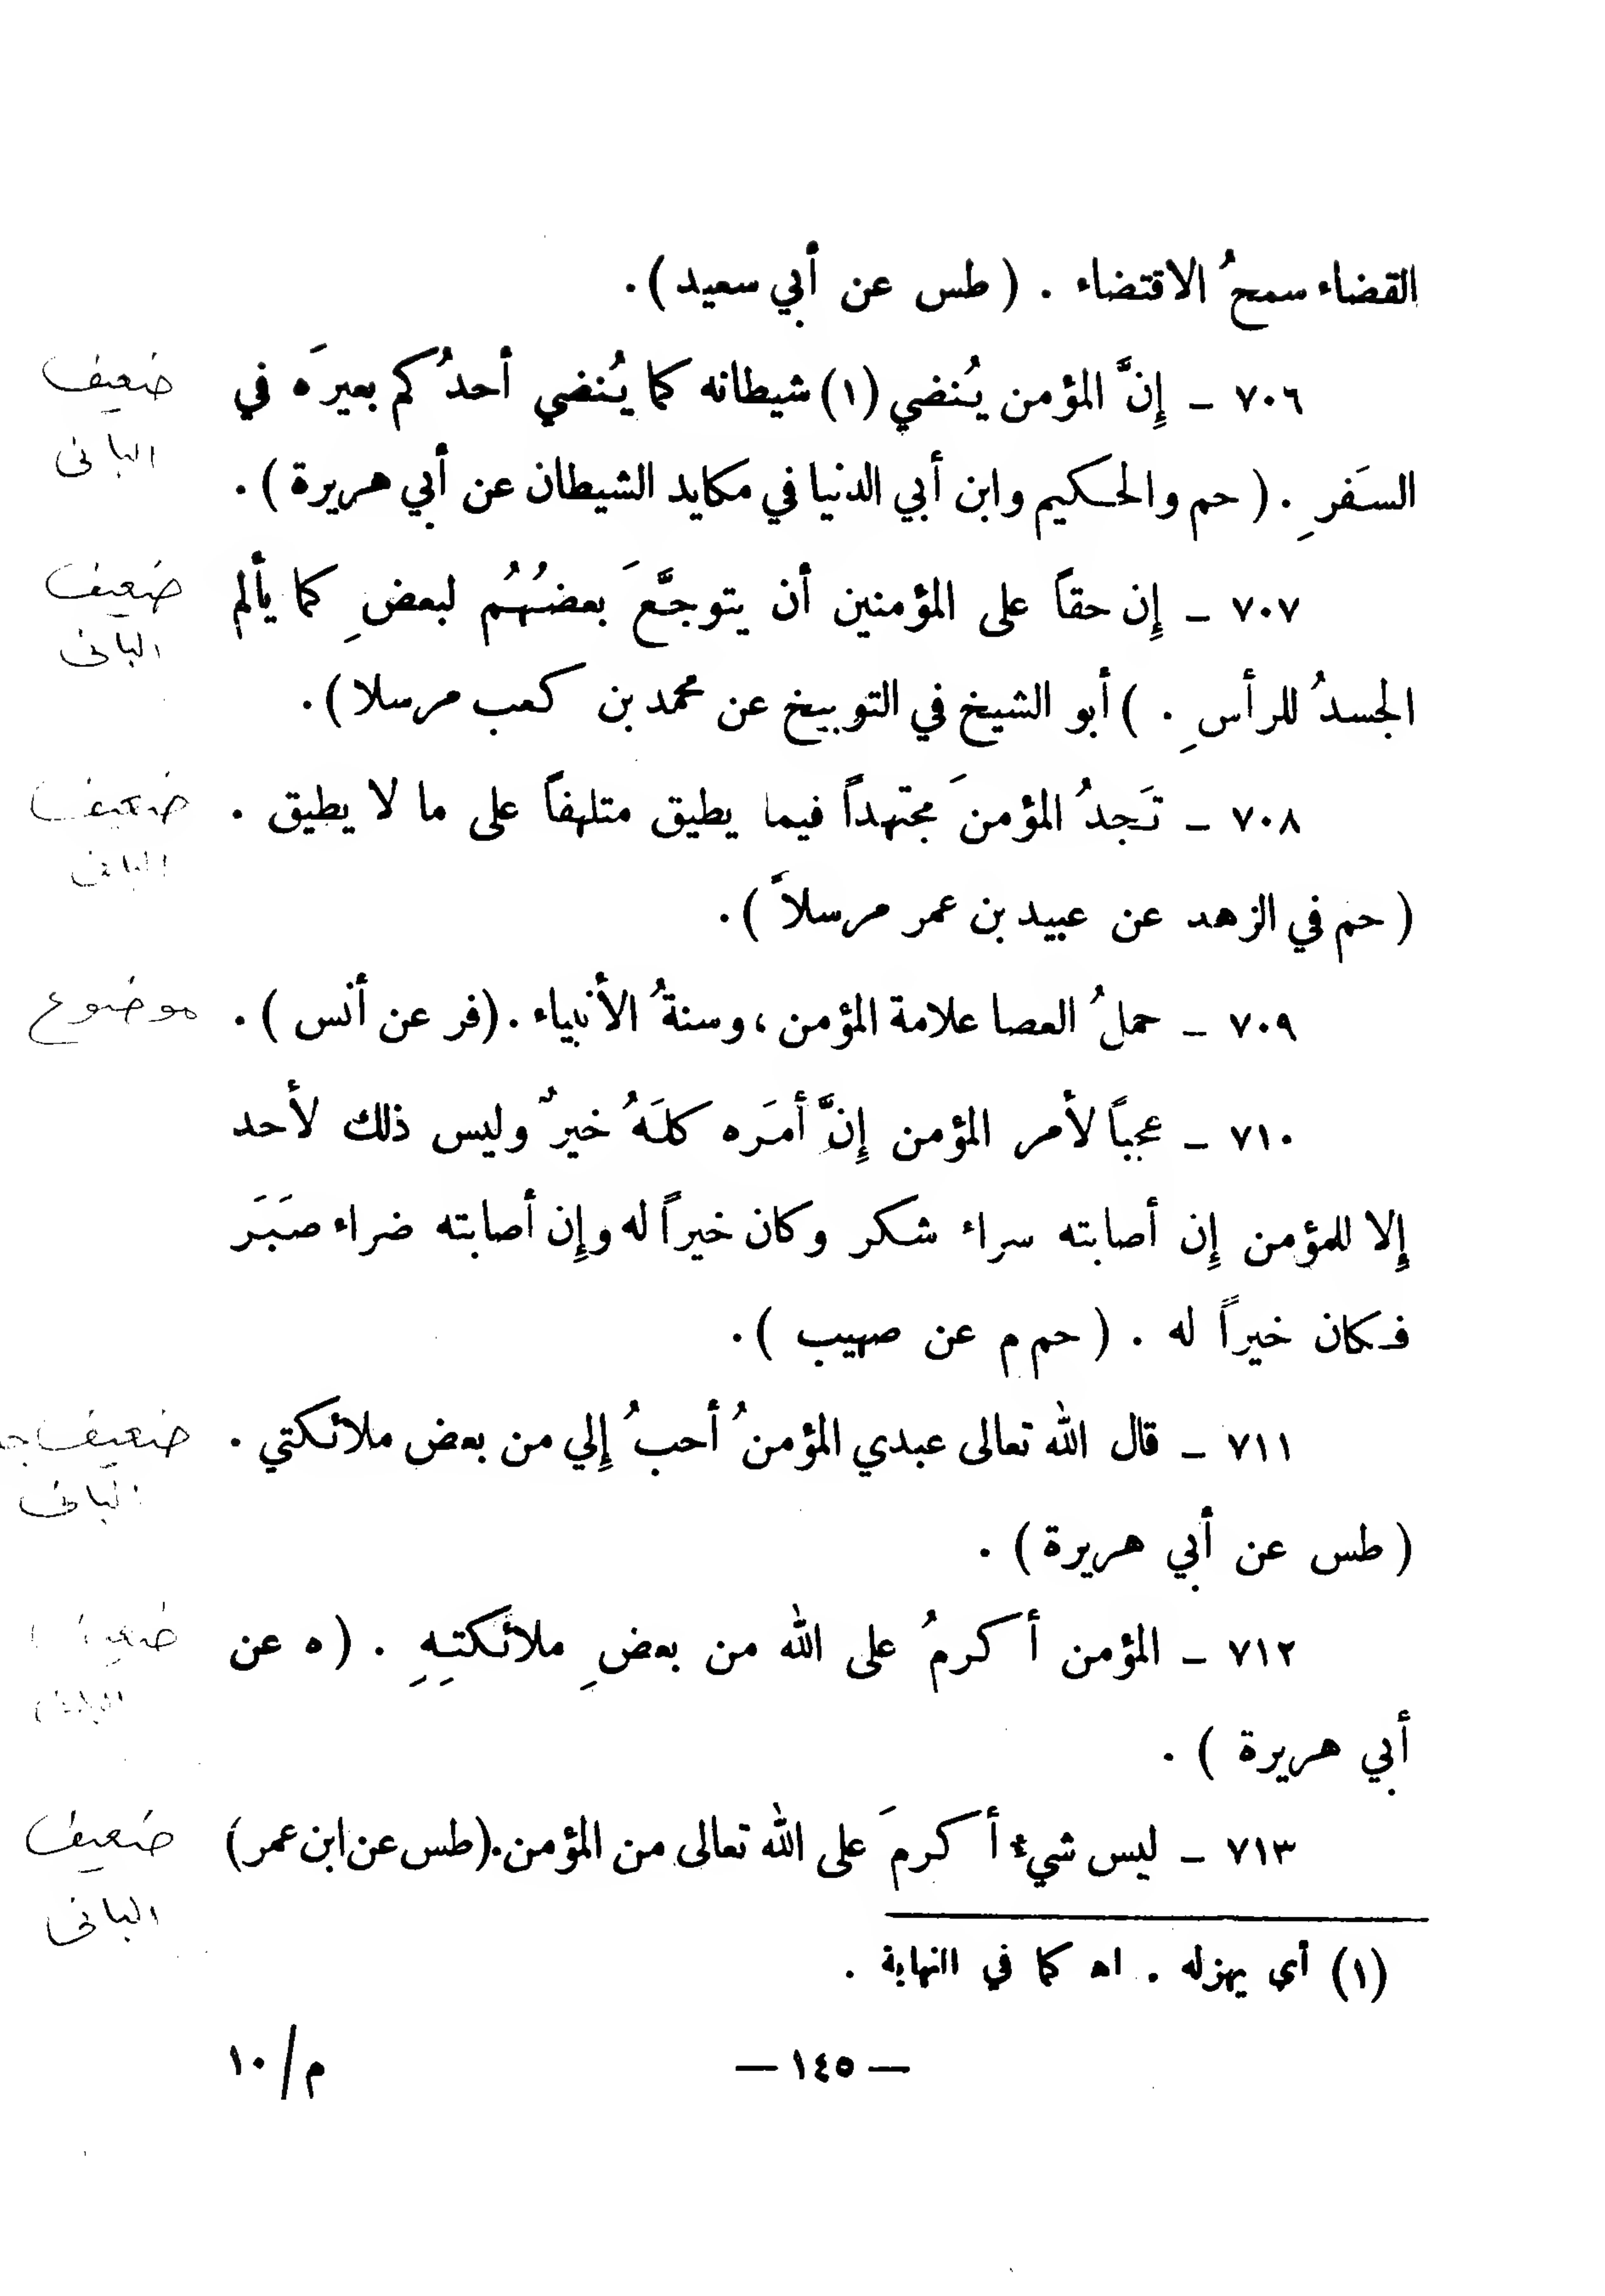 القضاء سمحُ الاقتضاء . ( طس عن أبي سعيد ) .
٧٠٦ – إِنَّ المؤمن يُنضي (١) شيطانه كما يُنضي أحدُكم بعيرَه في
ضعيف
الباني
السَفرِ . ( حم والحكيم وابن أبي الدنيا في مكايد الشيطان عن أبي هريرة ) .
٧٠٧ – إِن حقاً على المؤمنين أن يتوجَّعَ بعضُهُم لبعضِ كما يألم
ضعيف
البانى
الجسدُ للرأسِ . ) أبو الشيخ في التوبيخ عن محمد بن كعب مرسلا ) .
٧٠٨ – تَجدُ المؤمنَ مجتهداً فيما يطيق متلهفاً على ما لا يطيق .
ضعيف
البانى
( حم في الزهد عن عبيد بن عمر مرسلاً ) .
٧٠٩ – حملُ العصا علامة المؤمن ، وسنةُ الأنبياء . (فر عن أنس ) .
موضوع
٧١٠ – عجباً لأمر المؤمن إِنَّ أمَره كلَهُ خيرٌ وليس ذلك لأحد
إِلا للمؤمن إِن أصابته سراء شكر وكان خيراً له وإِن أصابته ضراء صَبَر
فكان خيراً له . ( حم م عن صهيب ) .
٧١١ – قال الله تعالى عبدي المؤمنُ أحبُ إِلي من بعض ملائكتي .
ضعيف
البانى
( طس عن أبي هريرة ) .
٧١٢ – المؤمن أكرمُ على الله من بعضِ ملائكتِهِ . ( ه عن
أبي هريرة ) .
٧١٣ – ليس شيء أكرمَ على الله تعالى من المؤمن . (طس عن ابن عمر)
ضعيف
البانى
(١) أي يهزله . اه كما في النهاية .
— ١٤٥ —
م/١٠